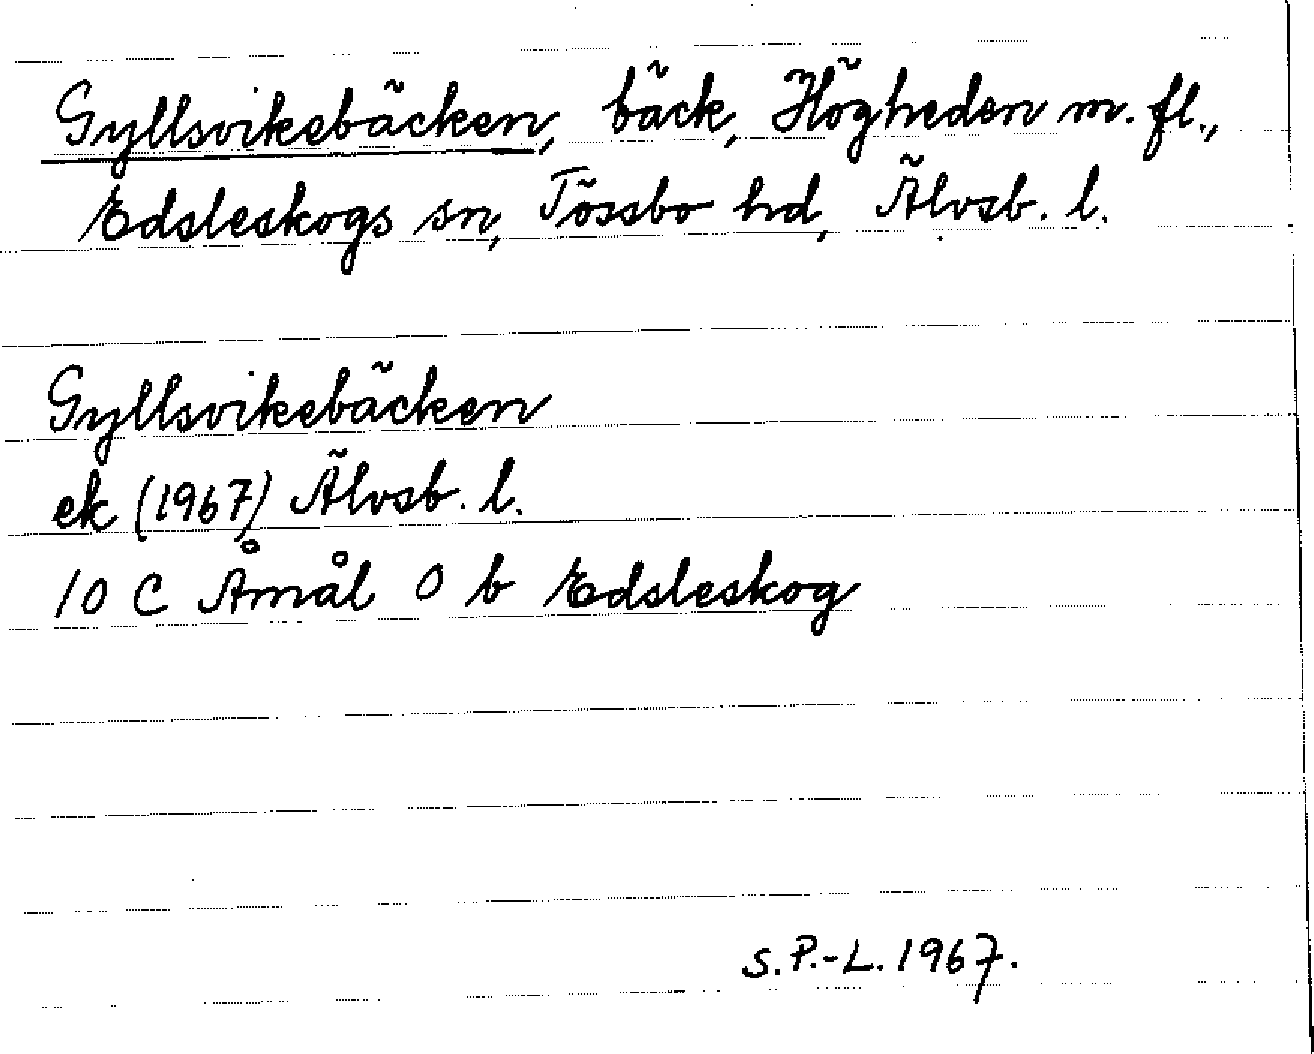 Gyllsvikebäcken, bäck, Högheden m. fl.,
Edsleskogs sn, Tössbo hd, Älvsb. l.
Gyllsvikebäcken
ek (1967) Älvsb. l.
10 C Åmål O b Edsleskog
S.P.-L. 1967.